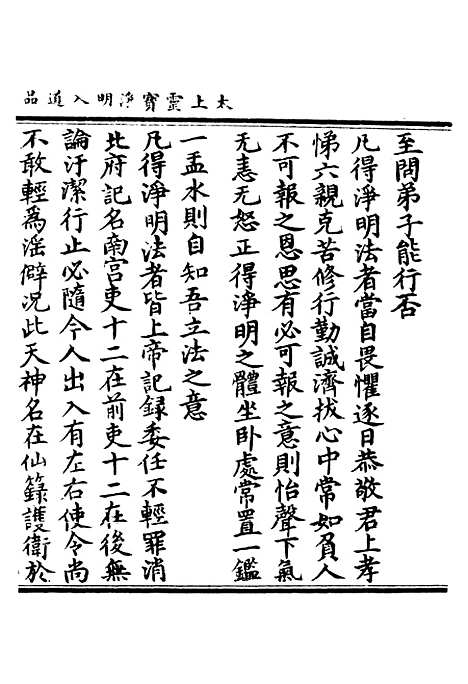 太上靈寶淨明入道品
至問弟子能行否
凡得淨明法者當自畏懼逐日恭敬君上孝
悌六親克苦修行勤誠濟拔心中常如負人
不可報之恩思有必可報之意則怡聲下氣
无恚无怒正得淨明之體坐卧處常置一鑑
一盂水則自知吾立法之意
凡得淨明法者皆上帝記録委任不輕罪消
北府記名南宫吏十二在前吏十二在後無
論汙潔行止必隨今入出入有左右使令尚
不敢輕為滛僻况此天神名在仙籙護衛於